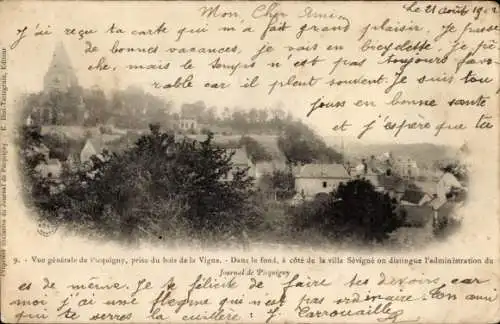 Le 21 août 1902
Mon Cher Ami,
J'ai reçu ta carte qui m'a fait grand plaisir. Je passe
de bonnes vacances, je vais en bicyclette de
mais le temps n'est pas toujours favo-
rable car il pleut souvent. Je suis tou-
jours en bonne santé
et j'espère que tu
9. - Vue générale de Picquigny, prise du bois de la Vigne. - Dans le fond, à côté de la ville Sévigné on distingue l'administration du
Journal de Picquigny
es de même. Je te félicite de faire tes devoirs car
moi j'ai une flegme qui n'est pas ordinaire. ton ami
qui te serres la cuillère: J. Carrouaille
Propriété exclusive du Journal de Picquigny